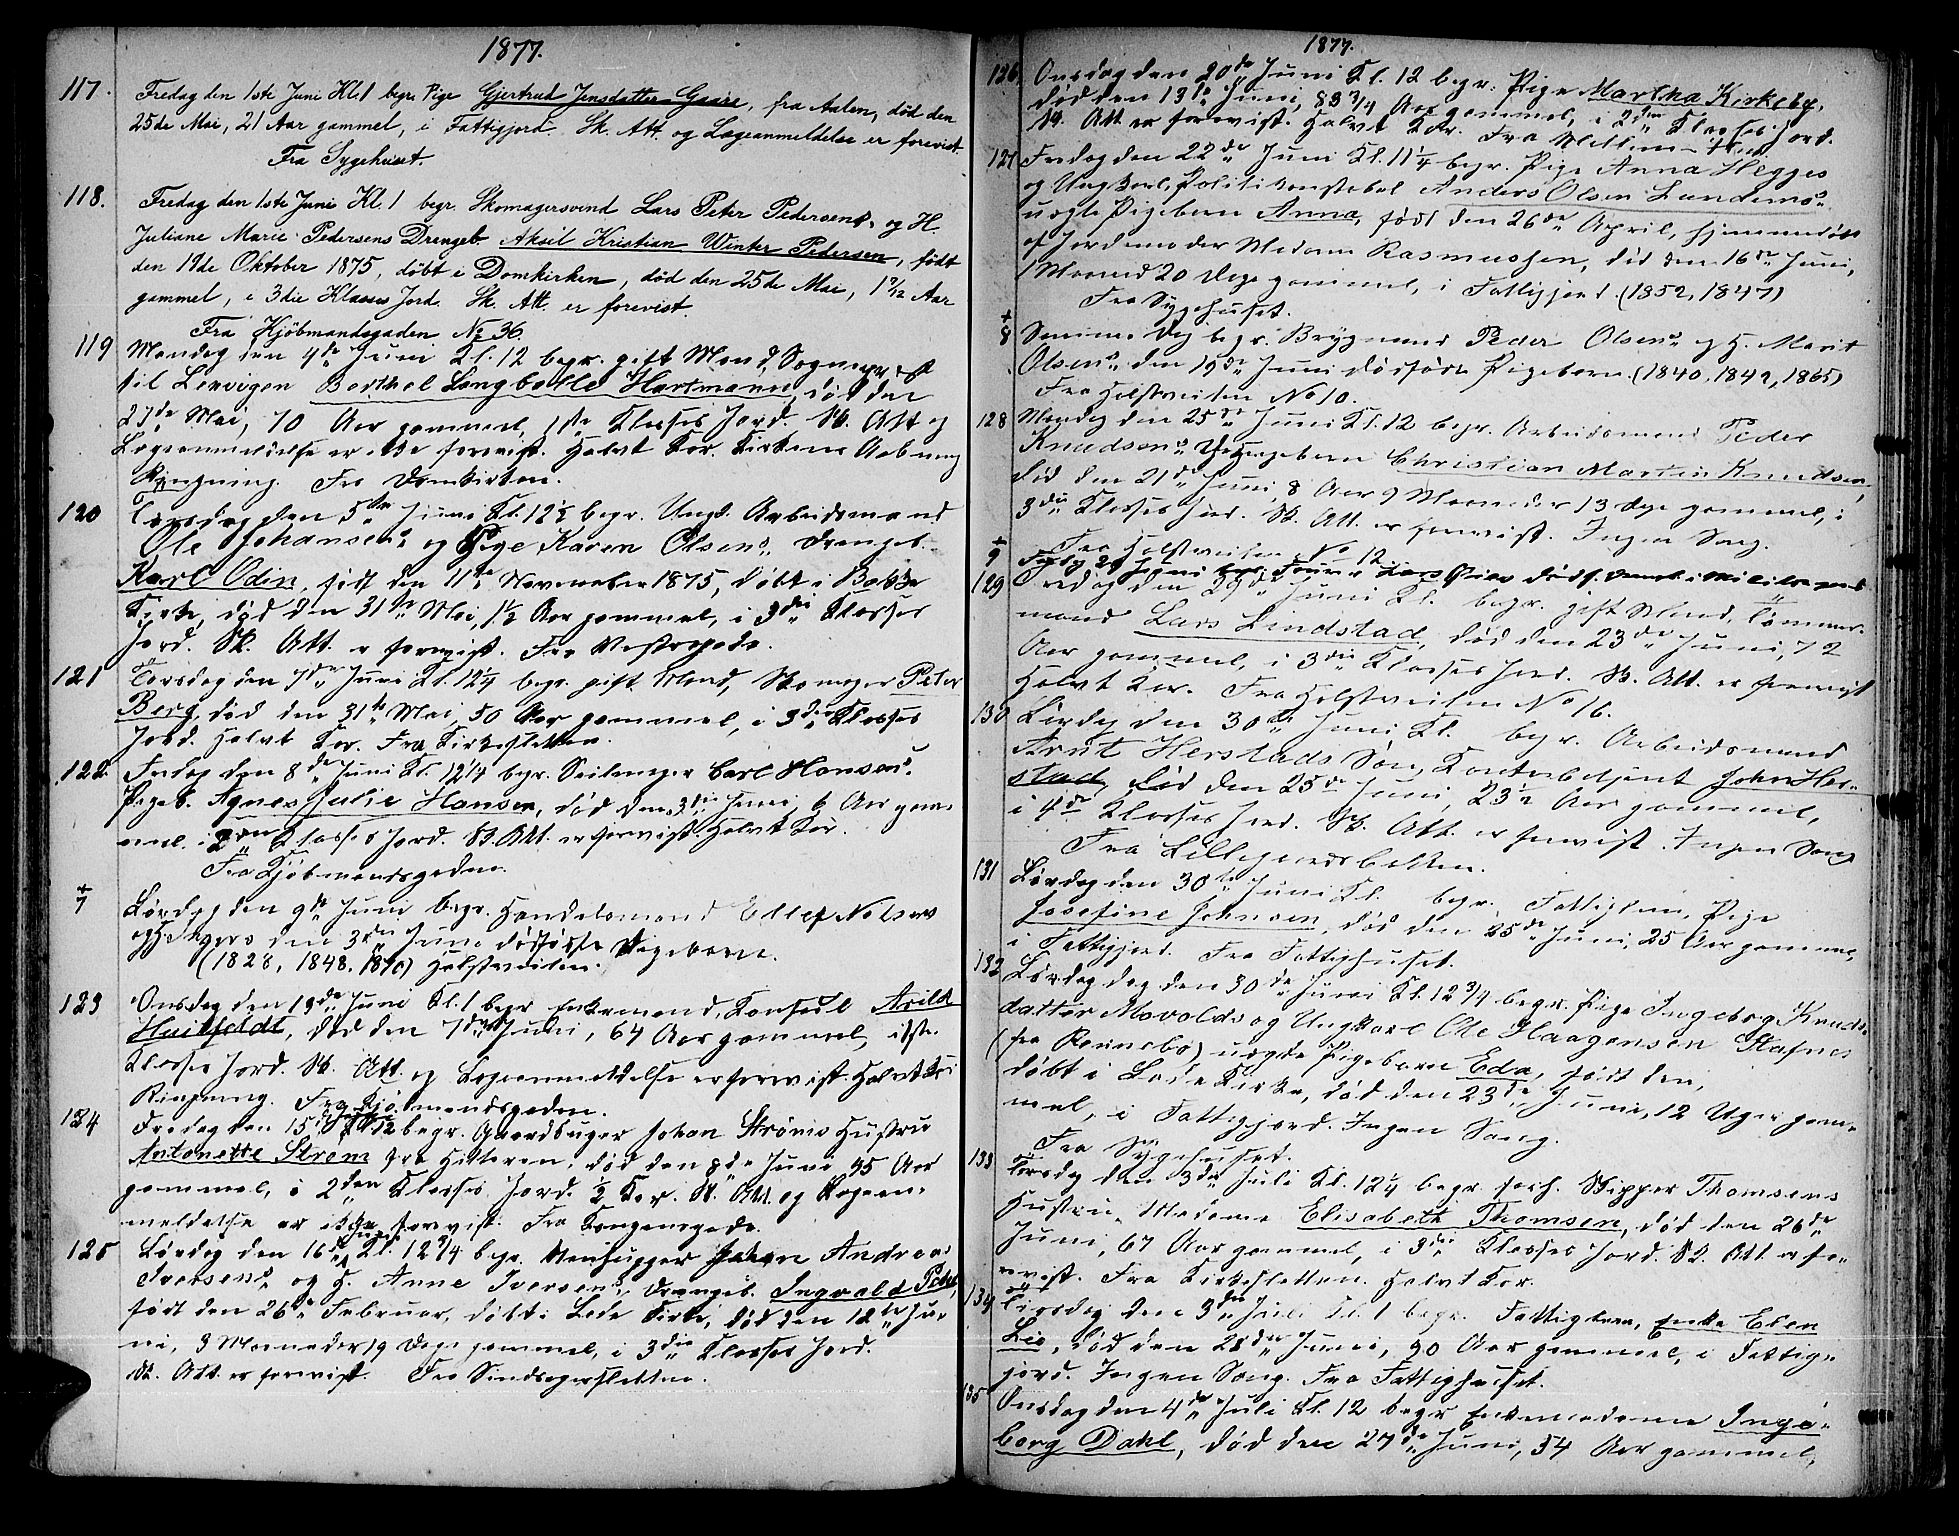 1877.
117. Fredag den 1ste Juni Kl. 1 begr. Pige Gjertrud Jensdatter Gaare, fra Aalen, død den
25de Mai, 21 Aar gammel, i Fattigjord. Sk. Att. og Lægeanmeldelse er forevist.
Fra Sygehuset.
118. Fredag den 1ste Juni Kl. 1 begr. Skomagersvend Lars Peter Pedersens og H.
Juliane Marie Pedersens Drengeb. Aksil Kristian Winter Pedersen, født
den 19de Oktober 1875, døbt i Domkirken, død den 25de Mai, 1 7/12 Aar
gammel, i 3die Klasses Jord. Sk. Att. er forevist.
Fra Kjøbmandsgaden No 36.
119 Mandag den 4de Juni Kl. 12 begr. gift Mand, Sogneprest
til Lexvigen Berthel Langbolle Hartmann, død den
27de Mai, 70 Aar gammel, 1ste Klasses Jord. Sk. Att og
Lægeanmeldelse er ikke forevist. Halvt Kor. Kirkens Aabning
Ringning. Fra Domkirken.
120 Tirsdag den 5te Juni Kl. 12½ begr. Ungk. Arbeidsmand
Ole Johansens og Pige Karen Olsens Drengeb.
Karl Odin, født den 11te November 1875, døbt i Bakke
Kirke, død den 31te Mai, 1½ Aar gammel, i 3die Klasses
Jord. Sk. Att. er forevist. Fra Vestregade.
121 Torsdag den 7de Juni Kl. 12¼ begr. gift Mand, Skomager Peter
Berg, død den 31te Mai, 50 Aar gammel, i 3die Klasses
Jord. Halvt Kor. Fra Kirkesletten.
122. Fredag den 8de Juni Kl. 12¼ begr. Seilmager Carl Hansens
Pigeb. Agnes Julie Hansen, død den 3die Juni, 6 Aar gam-
mel. i 2den Klasses Jord. Sk. Att. er forevist. Halvt Kor.
Fra Kjøbmandsgaden.
+
7 Lørdag den 9de Juni begr. Handelsmand Ellef Nelsens
og Ingers den 3die Juni dødfødte Pigebarn.
(1828, 1848, 1870) Holstveiten.
123 Onsdag den 13de Juni Kl. 1 begr. Enkemand, Konsul Arild
Huitfeldt, død den 7de Juni, 64 Aar gammel, i 1ste
Klasses Jord. Sk. Att. og Lægeanmeldelse er forevist. Halvt Kor
Ringning. Fra Kjøbmandsgaden.
124 Fredag den 15de Juni Kl. 12 begr. Gaardbruger Johan Strøms Hustru
Antonette Strøm fra Hitteren, død den 8de Juni 45 Aar
gammel, i 2den Klasses Jord. ½ Kor. Sk. Att. og Lægean-
meldelse er ikke forevist. Fra Kongensgade.
125 Lørdag den 16de Juni Kl. 12¼ begr. Johan Andreas
Iversens og H. Anne Iversens Drengeb. Ingvald Peder,
født den 26de Februar, døbt i Lade Kirke, død den 12te Ju-
ni, 3 Maaneder 19 Dage gammel, i 3die Klasses Jord.
Sk. Att. er forevist. Fra Sindsogersletten.
1877.
126. Onsdag den 20de Juni Kl. 12 begr. Pige Martha Kirkeby,
død den 13de Juni, 83 3/4 Aar gammel, i 2den Klasses Jord.
Sk. Att er forevist. Halvt Kor. Fra
127 Fredag den 22de Juni Kl. 11¼ begr. Pige Anna Hegges
og Ungkarl, Politikonstabel Anders Olsen Lundemo's
uægte Pigebarn Anna, født den 26de April, hjemmedøbt
af Jordemoder Madam Rasmussen, død den 16de Juni,
1 Maaned 20 Dage gammel, i Fattigjord (1852, 1847)
Fra Sygehuset.
+
8 Samme Dag begr. Brygmand Peder Olsens og H. Marit
Olsens den 19de Juni dødfødte Pigebarn. (1840, 1849, 1865)
Fra Holstveiten No 10.
128 Mandag den 25de Juni Kl. 12 begr. Arbeidsmand Peder
Knudsens Drengebarn Christian Martin Knudsen,
død den 21de Juni, 8 Aar 9 Maaneder 13 Dage gammel, i
3die Klasses Jord. Sk. Att. er forevist. Ingen Sang.
Fra Holstveiten No 12.
+
9
129 Fredag den 29de Juni Kl. begr. gift Mand, Tømmer-
mand Lars Lindstad, død den 23de Juni, 72
Aar gammel, i 3die Klasses Jord. Sk. Att. er forevist
Halvt Kor. Fra Holstveiten No 16.
130 Lørdag den 30te Juni Kl. begr. Arbeidsmand
Arnt Herstads Søn, Kontorbetjent John Her-
stad, død den 25de Juni, 23½ Aar gammel,
i 4de Klasses Jord. Sk. Att. er forevist. Ingen Sang
Fra Lillegaardsbakken.
131 Lørdag den 30te Juni Kl. begr. Fattiglem, Pige
Josefine Johnsen, død den 25de Juni, 25 Aar gammel,
i Fattigjord. Fra Fattighuset.
132 Lørdag dag den 30te Juni Kl. 12 3/4 begr. Pige Ingeborg Knuds-
datter Movolds og Ungkarl Ole Haagensen Stafnes
(fra Rennebo) uægte Pigebarn Eda, født den,
døbt i Lade Kirke, død den 23de Juni, 12 Uger gam-
mel, i Fattigjord. Ingen Sang.
Fra Sygehuset.
133 Tirsdag den 3die Juli Kl. 12¼ begr. forh. Skipper Thomsens
Hustru, Madame Elisabeth Thomsen, død den 26de
Juni, 67 Aar gammel, i 3die Klasses Jord. Sk. Att. er fo-
revist. Fra Kirkesletten. Halvt Kor.
134 Tirsdag den 3die Juli Kl. 1 begr. Fattiglem, Enke Elen
Lio, død den 28de Juni, 90 Aar gammel, i Fattig-
jord. Ingen Sang. Fra Fattighuset.
135 Onsdag den 4de Juli Kl. 12 begr. Enkemadame Inge-
borg Dahl, død den 27de Juni, 54 Aar gammel,